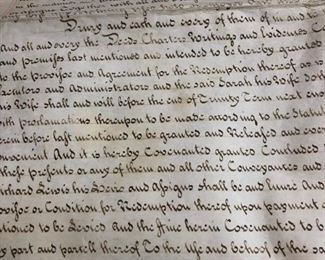 in the manner
Drury and each and every of them of in and to
and all and every the Deeds Charters Writings and Evidences
and premises last mentioned and intended to be hereby granted
to the proviso and Agreement for the Redemption thereof
Executors and Administrators and the said Sarah his Wife doth
his Wife shall and will before the end of Trinity Term next
with proclamations thereupon to be made according to the
before last mentioned to be granted and Released and every
And it is hereby Covenanted granted Concluded
these presents or any of them and all other Conveyances and
Lewis his Heirs and Assigns shall be and Enure And
or Condition for Redemption thereof upon payment
to be Levied and the fine herein Covenanted to be
part and parcell thereof To the use and behoof of the